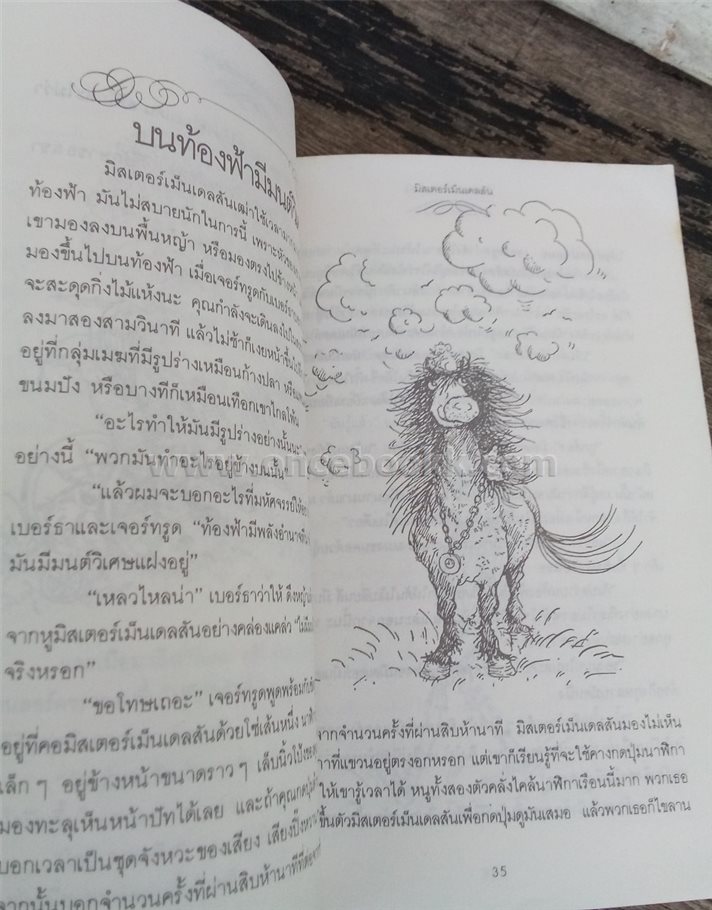 บนท้องฟ้ามีมนต์
มิสเตอร์เม็นเดลสันเฒ่าใช้เวลา
ท้องฟ้า มันไม่สบายนักในการนี้ เพราะหัวของ
เขามองลงบนพื้นหญ้า หรือมองตรงไปข้างหน้า
มองขึ้นไปบนท้องฟ้า เมื่อเจอร์ทรูดกับเบอร์ธา
จะสะดุดกิ่งไม้แห้งนะ คุณกำลังจะเดินลงไปใน
ลงมาสองสามวินาที แล้วไม่ช้าก็เงยหน้าขึ้น
อยู่ที่กลุ่มเมฆที่มีรูปร่างเหมือนก้างปลา หรือ
ขนมปัง หรือบางทีก็เหมือนเทือกเขาไกลโพ้น
"อะไรทำให้มันมีรูปร่างอย่างนั้นนะ"
อย่างนี้ "พวกมันทำอะไรอยู่ข้างบนนั้น
"แล้วผมจะบอกอะไรที่มหัศจรรย์ให้
เบอร์ธาและเจอร์ทรูด "ท้องฟ้ามีพลังอำนาจ
มันมีมนต์วิเศษแฝงอยู่"
"เหลวไหลน่า" เบอร์ธาว่าให้ ดึงหญ้า
จากหูมิสเตอร์เม็นเดลสันอย่างคล่องแคล่ว "ไม่มี
จริงหรอก"
"ขอโทษเถอะ" เจอร์ทรูดพูดพร้อมกับ
อยู่ที่คอมิสเตอร์เม็นเดลสันด้วยโซ่เส้นหนึ่ง นาฬิกา
เล็กๆ อยู่ข้างหน้าขนาดราวๆ เล็บนิ้วโป้งของ
มองทะลุเห็นหน้าปัทได้เลย และถ้าคุณกดปุ่ม
บอกเวลาเป็นชุดจังหวะของเสียง เสียงปิ๊ง
จากนั้นบอกจำนวนครั้งที่ผ่านสิบห้านาที
มิสเตอร์เม็นเดลสัน
www.oncebook.com
จากจำนวนครั้งที่ผ่านสิบห้านาที มิสเตอร์เม็นเดลสันมองไม่เห็น
กาที่แขวนอยู่ตรงอกหรอก แต่เขาก็เรียนรู้ที่จะใช้คางกดปุ่มนาฬิกา
ให้เขารู้เวลาได้ หนูทั้งสองตัวคลั่งไคล้นาฬิกาเรือนนี้มาก พวกเธอ
ขึ้นตัวมิสเตอร์เม็นเดลสันเพื่อกดปุ่มดูมันเสมอ แล้วพวกเธอก็ไขลาน
35